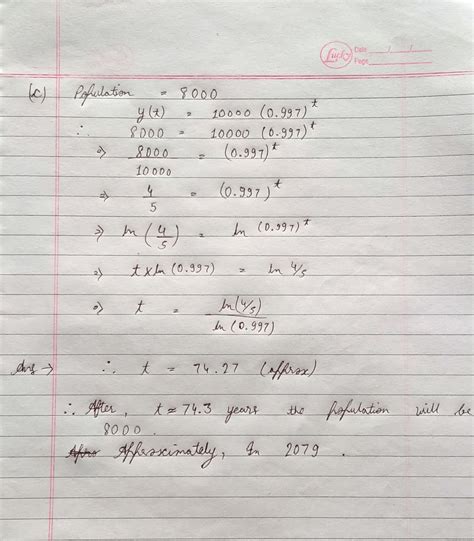 Lucky Date / /
Page
(c) Population = 8000
y(t) = 10000 (0.997)^t
∴ 8000 = 10000 (0.997)^t
⇒ 8000/10000 = (0.997)^t
⇒ 4/5 = (0.997)^t
⇒ ln (4/5) = ln (0.997)^t
⇒ t x ln (0.997) = ln 4/5
⇒ t = ln(4/5)/ln (0.997)
Ans → ∴ t = 74.27 (approx)
∴ After, t ≈ 74.3 years the population will be
8000.
Approximately, In 2079.